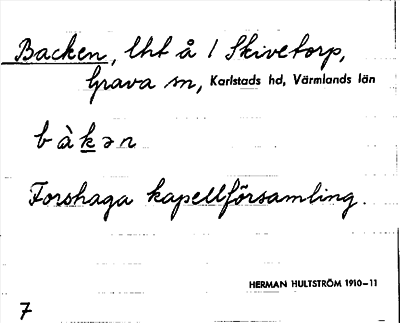 Backen, lht å 1 Skivetorp,
Grava sn, Karlstads hd, Värmlands län
b à k ə n
Forshaga kapellförsamling.
HERMAN HULTSTRÖM 1910–11
7